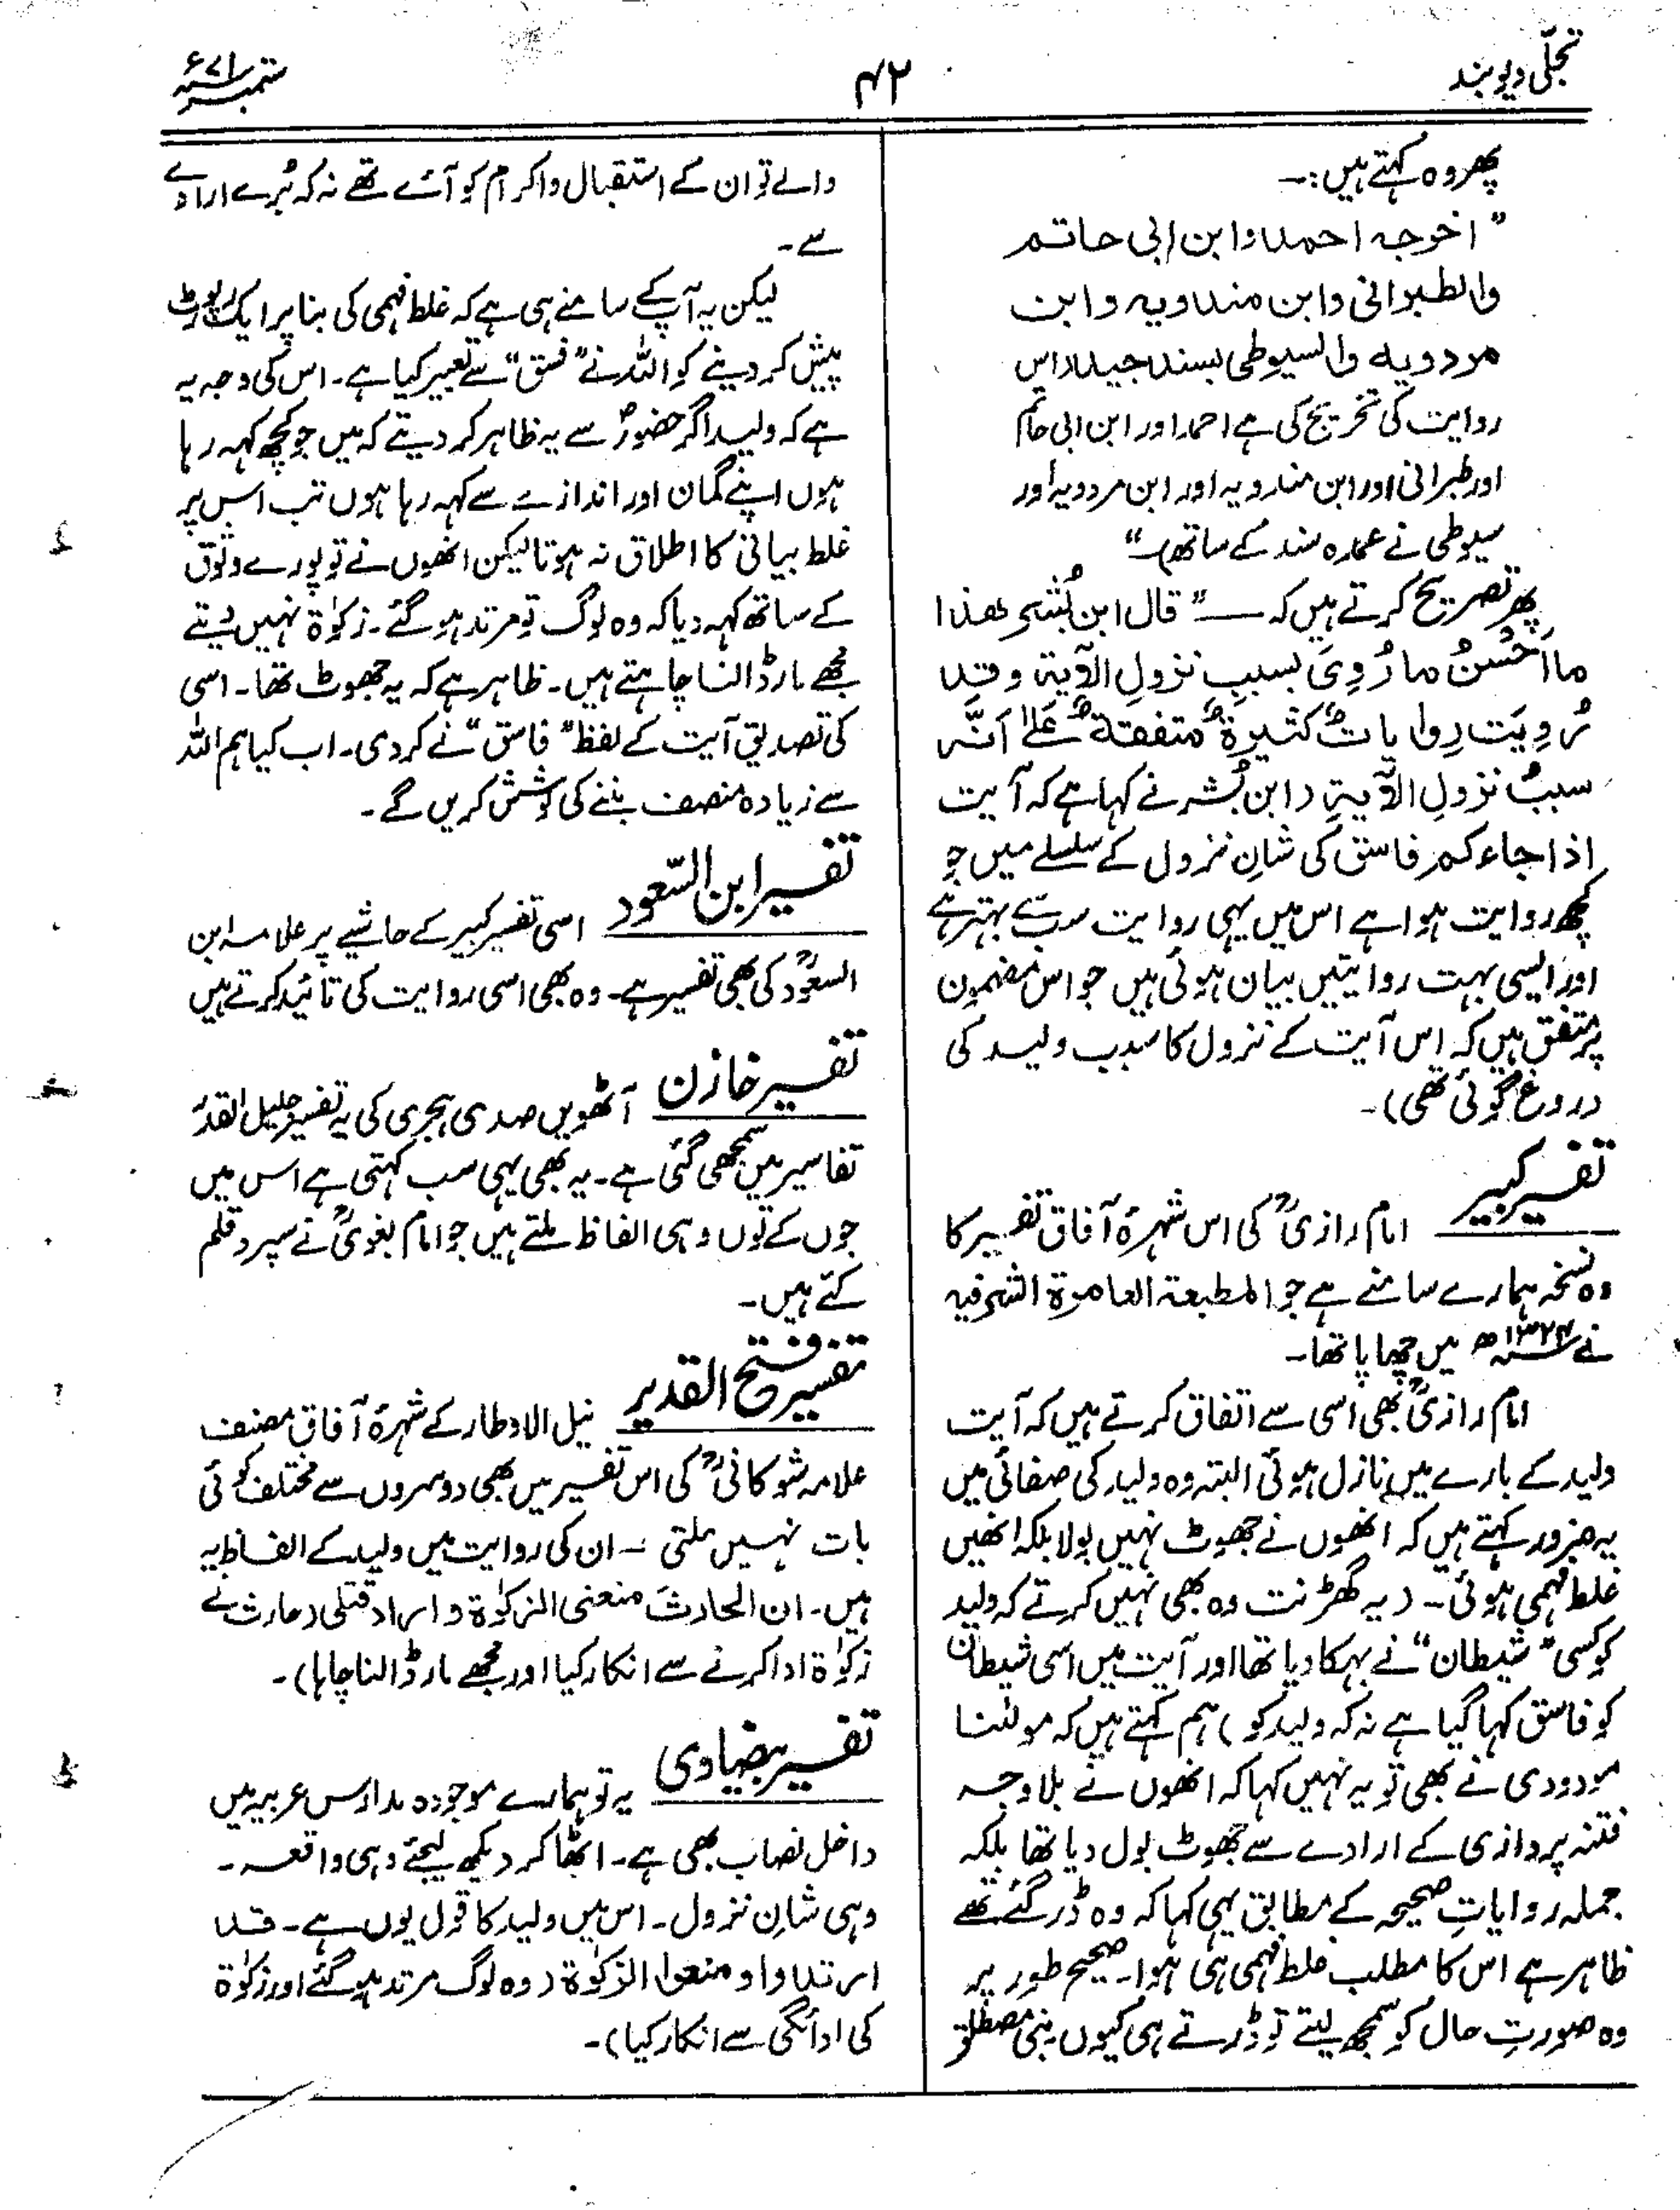 تجلّی دیوبند
۴۲
ستمبر ۷۱ء
پھر وہ کہتے ہیں:۔
" اخرجہ احمد وابن ابی حاتم
والطبرانی وابن مندویہ وابن
مردویہ والسیوطی بسند جید (اس
روایت کی تخریج کی ہے احمد اور ابن ابی حاتم
اور طبرانی اور ابن مندویہ اور ابن مردویہ اور
سیوطی نے عمدہ سند کے ساتھ)۔"
پھر تصریح کرتے ہیں کہ ۔۔ " قال ابن بُشر ھٰذا
ما اَحْسنُ ما رُوِیَ بسببِ نزولِ الآیة وقد
رُوِیَت رِوایاتٌ کثیرةٌ متفقةٌ عَلٰے اَنَّہ
سببُ نزولِ الآیةِ (ابن بُشر نے کہا ہے کہ آیت
اذا جاءکم فاسق کی شانِ نزول کے سلسلے میں جو
کچھ روایت ہوا ہے اس میں یہی روایت سب سے بہتر ہے
اور ایسی بہت روایتیں بیان ہوئی ہیں جو اس مضمون
پر متفق ہیں کہ اس آیت کے نزول کا سبب ولید کی
دروغ گوئی تھی)۔
تفسیر کبیر امام رازیؒ کی اس شہرۂ آفاق تفسیر کا
وہ نسخہ ہمارے سامنے ہے جو المطبعة العامرة الشرفیہ
نے ۱۳۲۴ھ میں چھاپا تھا۔
امام رازیؒ بھی اسی سے اتفاق کرتے ہیں کہ آیت
ولید کے بارے میں نازل ہوئی البتہ وہ ولید کی صفائی میں
یہ ضرور کہتے ہیں کہ انھوں نے جھوٹ نہیں بولا بلکہ انھیں
غلط فہمی ہوئی۔ (یہ گھڑنت وہ بھی نہیں کرتے کہ ولید
کو کسی "شیطان" نے بہکا دیا تھا اور آیت میں اسی شیطان
کو فاسق کہا گیا ہے نہ کہ ولید کو) ہم کہتے ہیں کہ مولٰنا
مودودی نے بھی تو یہ نہیں کہا کہ انھوں نے بلا وجہ
فتنہ پردازی کے ارادے سے جھوٹ بول دیا تھا بلکہ
جملہ روایاتِ صحیحہ کے مطابق یہی کہا کہ وہ ڈر گئے تھے
ظاہر ہے اس کا مطلب غلط فہمی ہی ہوا۔ صحیح طور پر
وہ صورتِ حال کو سمجھ لیتے تو ڈرتے ہی کیوں بنی مصطلق
والے تو ان کے استقبال و اکرام کو آئے تھے نہ کہ بُرے ارادے
سے۔
لیکن یہ آپ کے سامنے ہی ہے کہ غلط فہمی کی بنا پر ایک رپورٹ
پیش کر دینے کو اللہ نے "فسق" سے تعبیر کیا ہے۔ اس کی وجہ یہ
ہے کہ ولید اگر حضورؐ سے یہ ظاہر کر دیتے کہ میں جو کچھ کہہ رہا
ہوں اپنے گمان اور اندازے سے کہہ رہا ہوں تب اس پر
غلط بیانی کا اطلاق نہ ہوتا لیکن انھوں نے تو پورے وثوق
کے ساتھ کہہ دیا کہ وہ لوگ تو مرتد ہو گئے۔ زکوٰة نہیں دیتے
مجھے مار ڈالنا چاہتے ہیں۔ ظاہر ہے کہ یہ جھوٹ تھا۔ اسی
کی تصدیق آیت کے لفظ "فاسق" نے کر دی۔ اب کیا ہم اللہ
سے زیادہ منصف بننے کی کوشش کریں گے۔
تفسیر ابن السّعود اسی تفسیر کبیر کے حاشیے پر علامہ ابن
السعودؒ کی بھی تفسیر ہے۔ وہ بھی اسی روایت کی تائید کرتے ہیں
تفسیر خازن آٹھویں صدی ہجری کی یہ تفسیر جلیل القدر
تفاسیر میں سمجھی گئی ہے۔ یہ بھی یہی سب کہتی ہے اس میں
جوں کے توں وہی الفاظ ملتے ہیں جو امام بغویؒ نے سپرد قلم
کئے ہیں۔
تفسیر فتح القدیر نیل الاوطار کے شہرۂ آفاق مصنف
علامہ شوکانیؒ کی اس تفسیر میں بھی دوسروں سے مختلف کوئی
بات نہیں ملتی ۔ ان کی روایت میں ولید کے الفاظ یہ
ہیں۔ ان الحارثَ منعنی الزکوٰة و اراد قتلی (حارث نے
زکوٰة ادا کرنے سے انکار کیا اور مجھے مار ڈالنا چاہا)۔
تفسیر بیضاوی یہ تو ہمارے موجودہ مدارس عربیہ میں
داخل نصاب بھی ہے۔ اٹھا کر دیکھ لیجئے وہی واقعہ۔
وہی شانِ نزول۔ اس میں ولید کا قول یوں ہے۔ قد
ارتدوا و منعوا الزکوٰة (وہ لوگ مرتد ہو گئے اور زکوٰة
کی ادائگی سے انکار کیا)۔